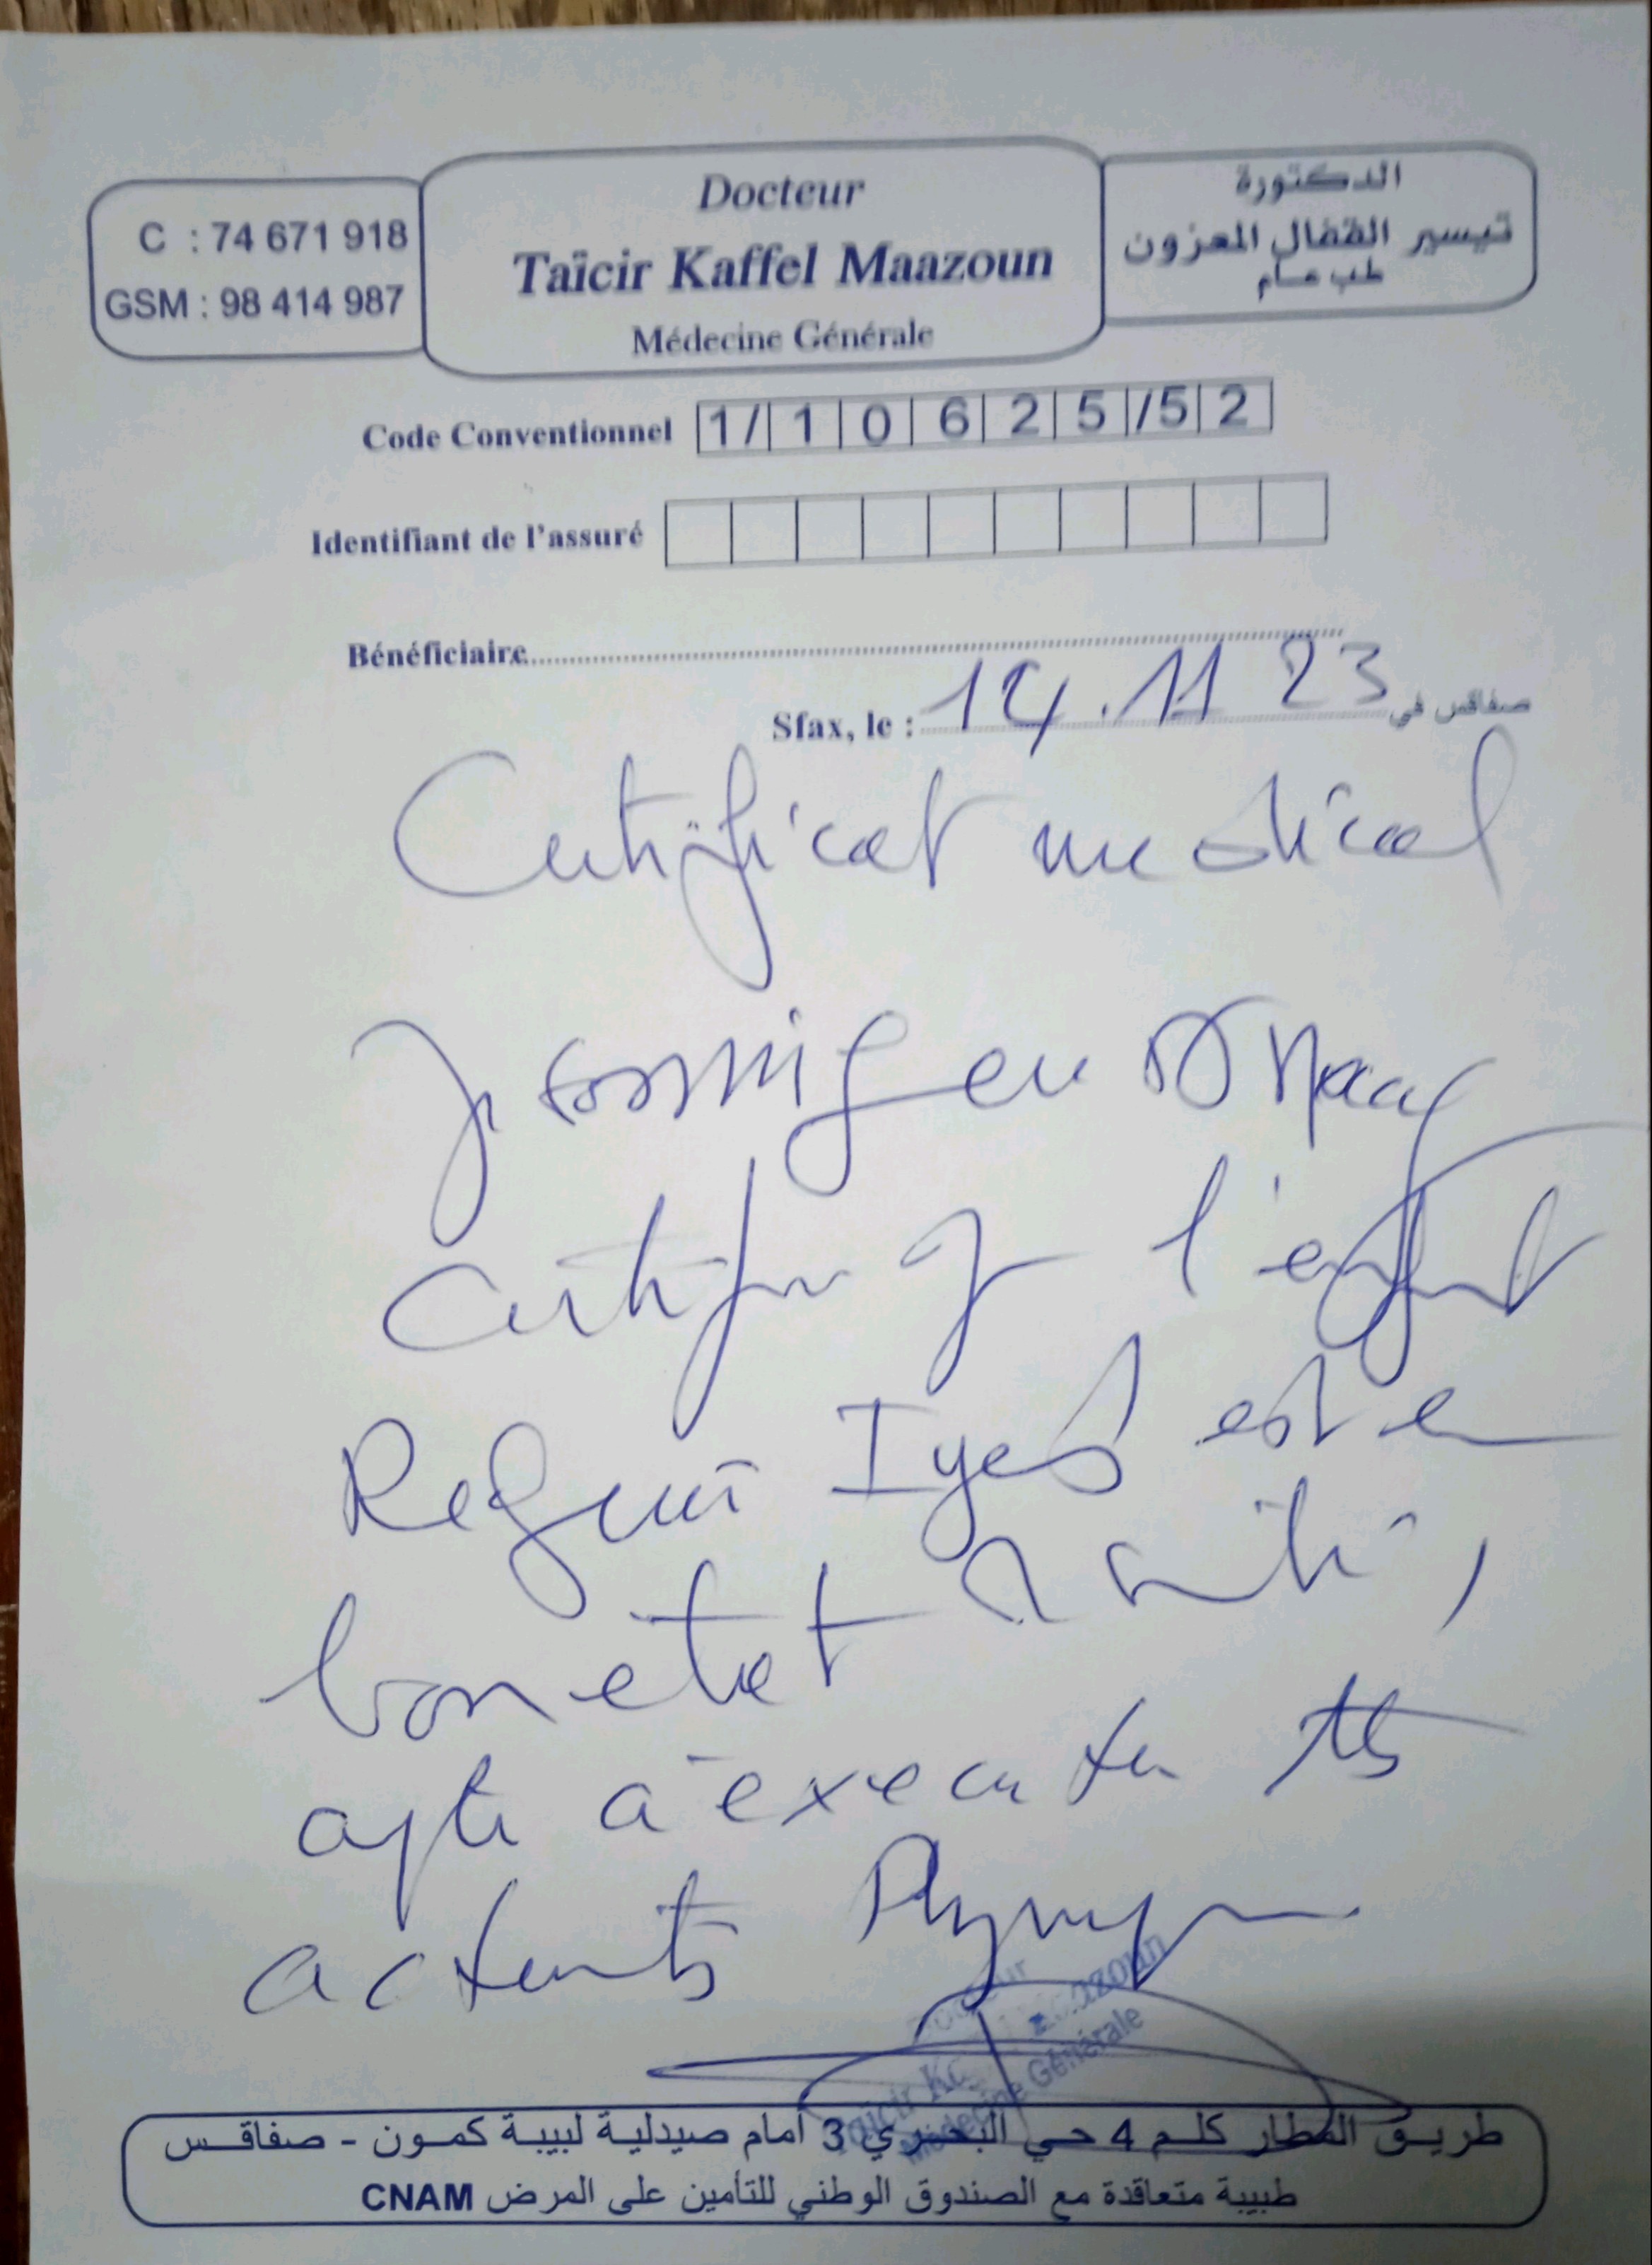 C : 74 671 918
GSM : 98 414 987
Docteur
Taïcir Kaffel Maazoun
Médecine Générale
الدكتورة
تيسير القفال المعزون
طب عام
Code Conventionnel 1/10625/52
Identifiant de l'assuré
Bénéficiaire
Sfax, le : 14.11 23 صفاقس في
Certificat medical
Je soussigné en
certifie q l'enfant
Reguii Iyed est en
bon etat santé,
apte à executer
Médecine Générale
طريق المطار كلم 4 حي البحري 3 أمام صيدلية لبيبة كمون - صفاقس
طبيبة متعاقدة مع الصندوق الوطني للتأمين على المرض CNAM